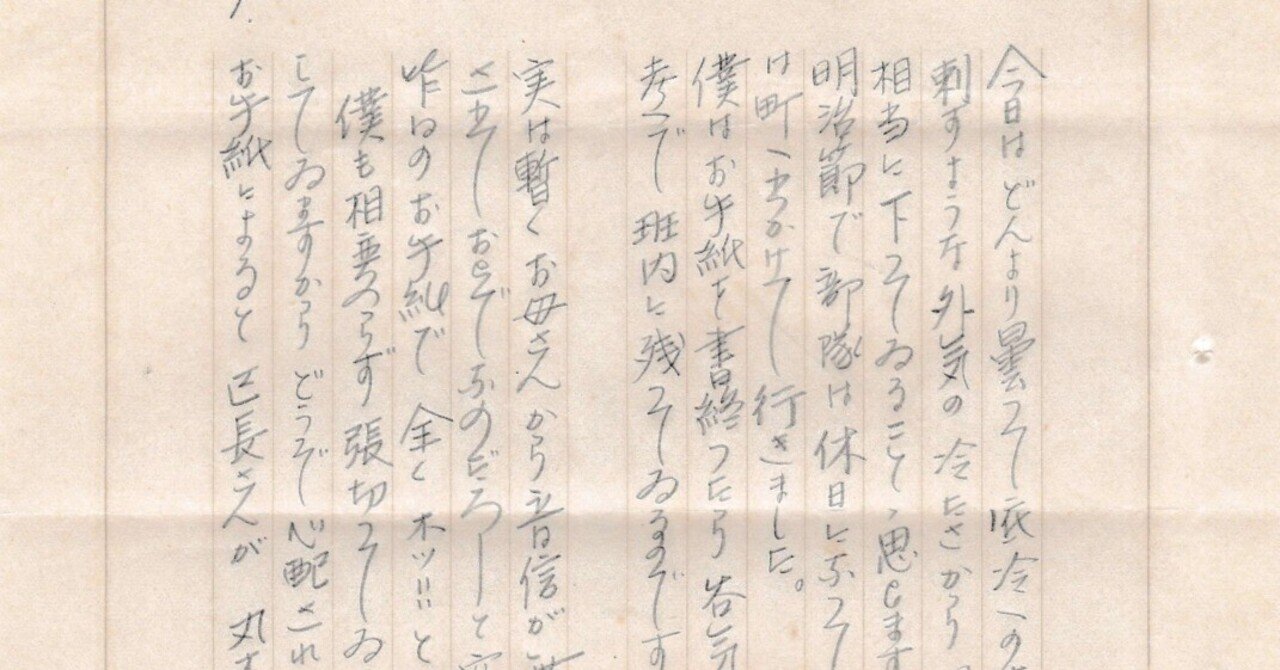 今日はどんより曇つて底冷への
刺すような外気の冷たさから
相当に下つてゐること、思ひます
明治節で部隊は休日になつて
は町へ出かけて行きました。
僕はお手紙を書終つたら呑気
考へで班内に残つてゐるのです
実は暫くお母さんから音信が
どうしておいでなのだろーと
昨日のお手紙で全くホッ!!と
僕も相変らず張切つてゐ
してゐますからどうぞ心配され
お手紙によると区長さんが